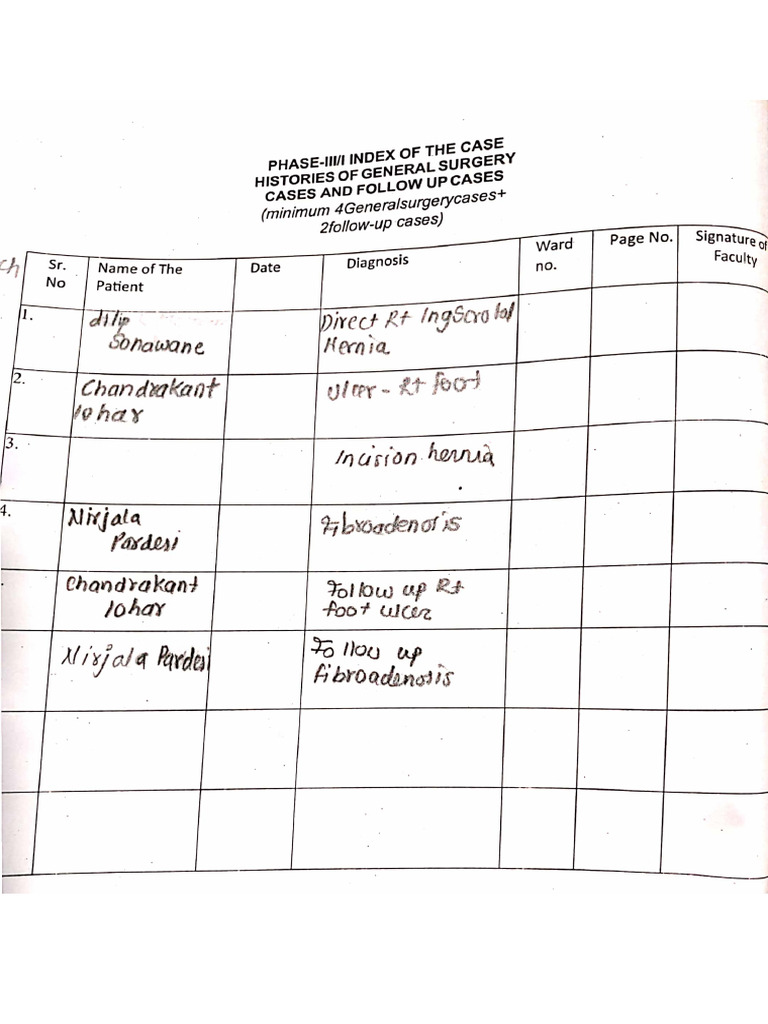 PHASE-III/I INDEX OF THE CASE
HISTORIES OF GENERAL SURGERY
CASES AND FOLLOW UP CASES
(minimum 4Generalsurgerycases+
2follow-up cases)
ch
Sr. No Name of The Patient Date Diagnosis Ward no. Page No. Signature of Faculty
1. dilip Direct Rt Ing Scrotal
Sonawane Hernia
2. Chandrakant Ulcer - Rt foot
lohar
3. Incision hernia
4. Nirjala Fibroadenosis
Pardesi
Chandrakant Follow up Rt
lohar foot ulcer
Nirjala Pardesi Follow up
fibroadenosis